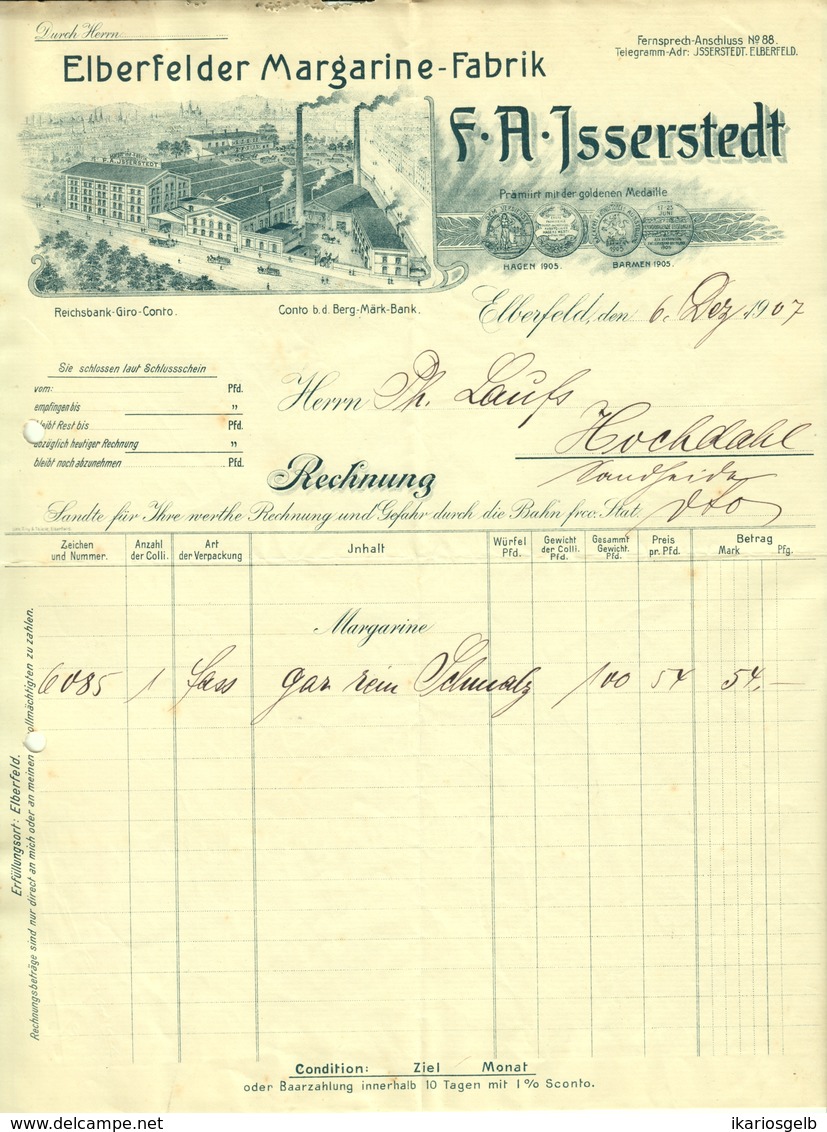 Durch Herrn
Fernsprech-Anschluss No 88.
Telegramm-Adr: JSSERSTEDT. ELBERFELD.
Elberfelder Margarine-Fabrik
F·A·Jsserstedt
F·A·JSSERSTEDT
Prämiirt mit der goldenen Medaille
HAGEN 1905.
BARMEN 1905.
Reichsbank-Giro-Conto.
Conto b. d. Berg-Märk-Bank.
Elberfeld, den 6. Dez 1907
Sie schlossen laut Schlussschein
vom: Pfd.
empfingen bis "
bleibt Rest bis Pfd.
abzüglich heutiger Rechnung "
bleibt noch abzunehmen Pfd.
Herrn Ph. Laufs
Hochdahl
Sandheide
Rechnung
Sandte für Ihre werthe Rechnung und Gefahr durch die Bahn frco. Stat. dto
Zeichen und Nummer. Anzahl der Colli. Art der Verpackung Jnhalt Würfel Pfd. Gewicht der Colli. Pfd. Gesammt Gewicht. Pfd. Preis pr. Pfd. Betrag Mark Pfg.
Margarine
6085 1 Fass gar. rein Schmalz 100 54 54.-
Erfüllungsort: Elberfeld.
Rechnungsbeträge sind nur direct an mich oder an meinen vollmächtigten zu zahlen.
Condition: Ziel Monat
oder Baarzahlung innerhalb 10 Tagen mit 1% Sconto.
ikariosgelb